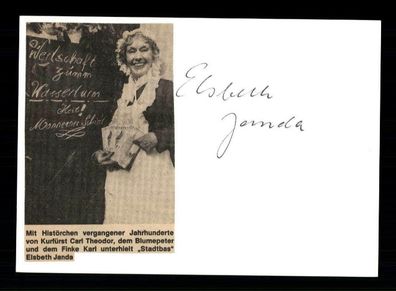 Wertschaft
zumm
Wasserturm
Heit
Mannemer
Elsbeth
Janda
Mit Histörchen vergangener Jahrhunderte
von Kurfürst Carl Theodor, dem Blumepeter
und dem Finke Karl unterhielt „Stadtbas“
Elsbeth Janda